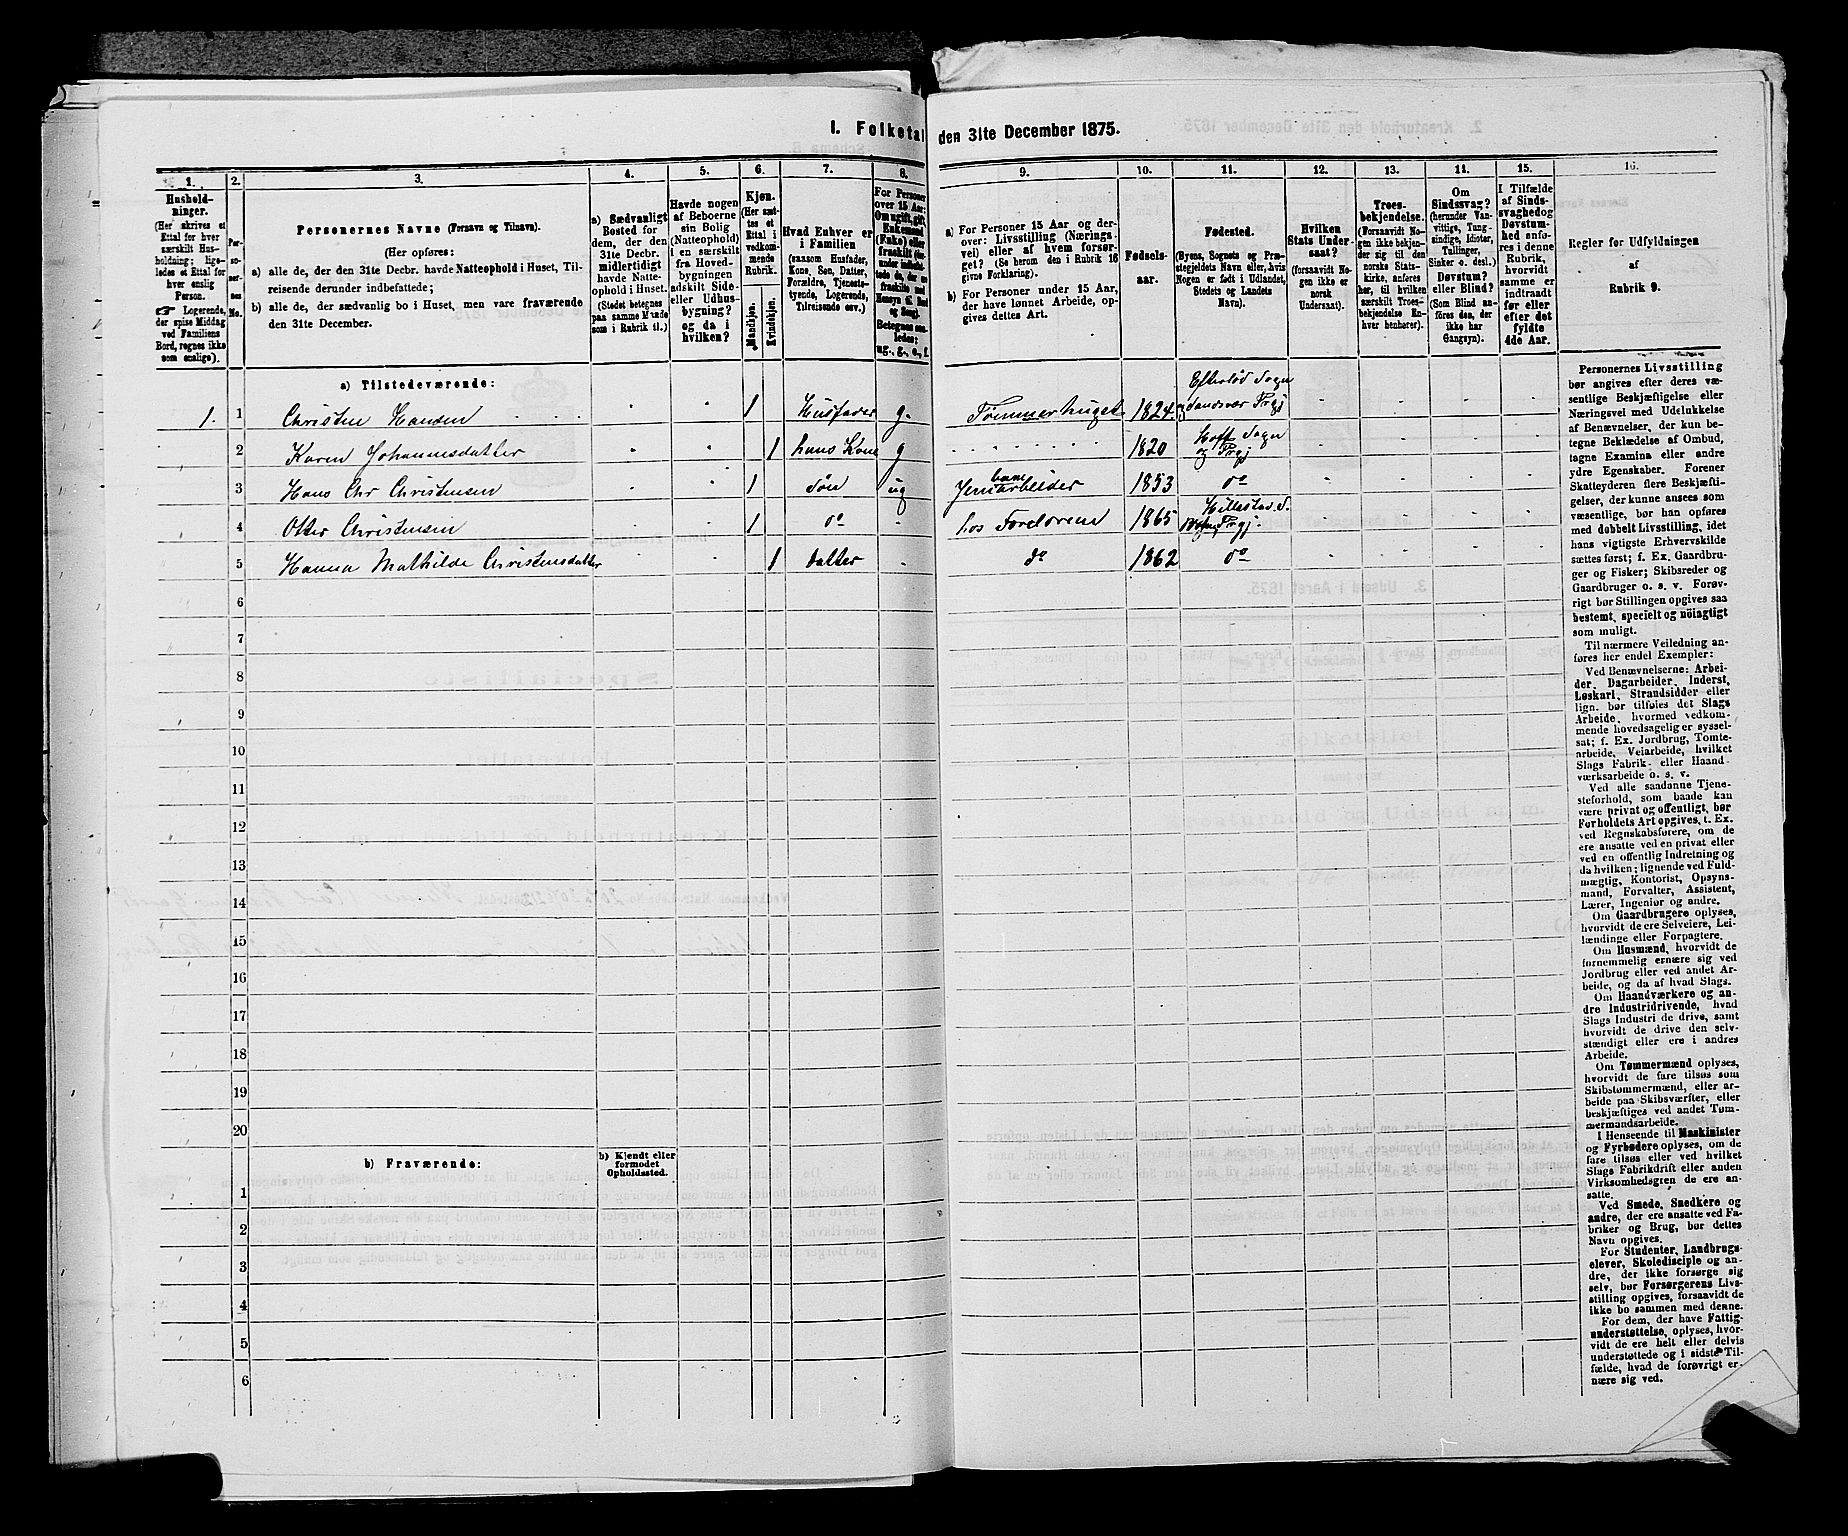 I. Folketal den 31te December 1875.
1. 2. 3. 4. 5. 6. 7. 8. 9. 10. 11. 12. 13. 14. 15. 16.
Husholdninger.
(Her skrives et
Ettal for hver
særskilt Husholdning;
ligeledes
et Ettal for
hver enslig
Person.
☛ Logerende,
der spise Middag
ved Familiens
Bord, regnes ikke
som enslige).
Personernes No.
Personernes Navne (Fornavn og Tilnavn).
(Her opføres:
a) alle de, der den 31te Decbr. havde Natteophold i Huset, Tilreisende
derunder indbefattede;
b) alle de, der sædvanlig bo i Huset, men vare fraværende
den 31te December.
a) Sædvanligt
Bosted for
dem, der den
31te Decbr.
midlertidigt
havde Natteophold
i Huset.
(Stedet betegnes
paa samme Maade
som i Rubrik 11.)
Havde nogen
af Beboerne
sin Bolig
(Natteophold)
i en særskilt
fra Hovedbygningen
adskilt Side-
eller Udhusbygning?
og da i
hvilken?
Kjøn.
(Her sættes
et
Ettal i
vedkommende
Rubrik.
Mandkjøn.
Kvindekjøn.
Hvad Enhver er
i Familien
(saasom Husfader,
Kone, Søn, Datter,
Forældre, Tjenestetyende,
Logerende,
Tilreisende osv.)
For Personer
over 15 Aar:
Om ugift, gift,
Enkemand
(Enke) eller
fraskilt
Betegnes saaledes:
ug., g., e., f.
a) For Personer 15 Aar og derover:
Livsstilling (Næringsvei)
eller af hvem forsørget?
(Se herom den i Rubrik 16
givne Forklaring).
b) For Personer under 15 Aar,
der have lønnet Arbeide, opgives
dettes Art.
Fødselsaar.
Fødested.
(Byens, Sognets og Præstegjeldets
Navn eller, hvis
Nogen er født i Udlandet,
Stedets og Landets
Navn).
Hvilken
Stats Undersaat?
(forsaavidt Nogen
ikke er
norsk
Undersaat).
Troesbekjendelse.
(Forsaavidt Nogen
ikke bekjender
sig til den
norske Statskirke,
anføres
her, til hvilken
særskilt Troesbekjendelse
Enhver
henhører).
Om
Sindssvag?
(herunder Vanvittige,
Tungsindige,
Idioter,
Tullinger,
Sinker o. desl.)
Døvstum?
eller Blind?
(Som Blind anføres
den, der
ikke har
Gangsyn).
I Tilfælde
af Sindssvaghed
og
Døvstumhed
anføres
i denne
Rubrik,
hvorvidt
samme er
indtraadt
før eller
efter det
fyldte
4de Aar.
Regler for Udfyldningen
af
Rubrik 9.
a) Tilstedeværende:
1. 1 Christen Hansen 1 Husfader g. Tømmerhugst 1824 Eftelød Sogn Sandsvær Prgj
2 Karen Johannesdatter 1 hans Kone g 1820 Hoff Sogn og Prgj
3 Hans Chr Christensen 1 Søn ug Jernbanearbeider 1853 do
4 Otter Christensen 1 do hos Foreldrene 1865 Hillestad S. Prgj.
5 Hanna Mathilde Christensdatter 1 datter do 1862 do
6
7
8
9
10
11
12
13
14
15
16
17
18
19
20
b) Fraværende:
b) Kjendt eller
formodet
Opholdssted.
1
2
3
4
5
6
Personernes Livsstilling
bør angives efter deres væsentlige
Beskjæftigelse eller
Næringsvei med Udelukkelse
af Benævnelser, der kun betegne
Beklædelse af Ombud,
tagne Examina eller andre
ydre Egenskaber. Forener
Skatteyderen flere Beskjæftigelser,
der kunne ansees som
væsentlige, bør han opføres
med dobbelt Livsstilling, idet
hans vigtigste Erhvervskilde
sættes først; f. Ex. Gaardbruger
og Fisker; Skibsreder og
Gaardbruger o. s. v. Forøvrigt
bør Stillingen opgives saa
bestemt, specielt og nöiagtigt
som muligt.
Til nærmere Veiledning anføres
her endel Exempler:
Ved Benævnelserne: Arbeider,
Dagarbeider, Inderst,
Løskarl, Strandsidder eller
lign. bør tilføies det Slags
Arbeide, hvormed vedkommende
hovedsagelig er sysselsat;
f. Ex. Jordbrug, Tomtearbeide,
Veiarbeide, hvilket
Slags Fabrik- eller Haandværksarbeide
o. s. v.
Ved alle saadanne Tjenesteforhold,
som baade kan
være privat og offentligt, bør
Forholdets Art opgives, t. Ex.
ved Regnskabsførere, om de
ere ansatte ved en privat eller
ved en offentlig Indretning og
da hvilken; lignende ved Fuldmægtig,
Kontorist, Opsynsmand,
Forvalter, Assistent,
Lærer, Ingeniør og andre.
Om Gaardbrugere oplyses,
hvorvidt de ere Selveiere, Leilændinge
eller Forpagtere.
Om Husmænd, hvorvidt de
fornemmelig ernære sig ved
Jordbrug eller ved andet Arbeide,
og da af hvad Slags.
Om Haandværkere og andre
Industridrivende, hvad
Slags Industri de drive, samt
hvorvidt de drive den selvstændigt
eller ere i andres
Arbeide.
Om Tømmermænd oplyses,
hvorvidt de fare tilsøs som
Skibstømmermænd, eller arbeide
paa Skibsværfter, eller
beskjæftiges ved andet Tømmermandsarbeide.
I Henseende til Maskinister
og Fyrbødere oplyses, om de
fare tilsøs eller ved hvilket
Slags Fabrikdrift eller anden
Virksomhedsgren de ere ansatte.
Ved Smede, Snedkere og
andre, der ere ansatte ved Fabriker
og Brug, bør dettes
Navn opgives.
For Studenter, Landbrugselever,
Skoledisciple og andre,
der ikke forsørge sig
selv, bør Forsørgerens Livsstilling
opgives, forsaavidt de
ikke bo sammen med denne.
For dem, der have Fattigunderstøttelse,
oplyses, hvorvidt
de ere helt eller delvis
understøttede og i sidste Tilfælde,
hvad de forøvrigt ernære
sig ved.